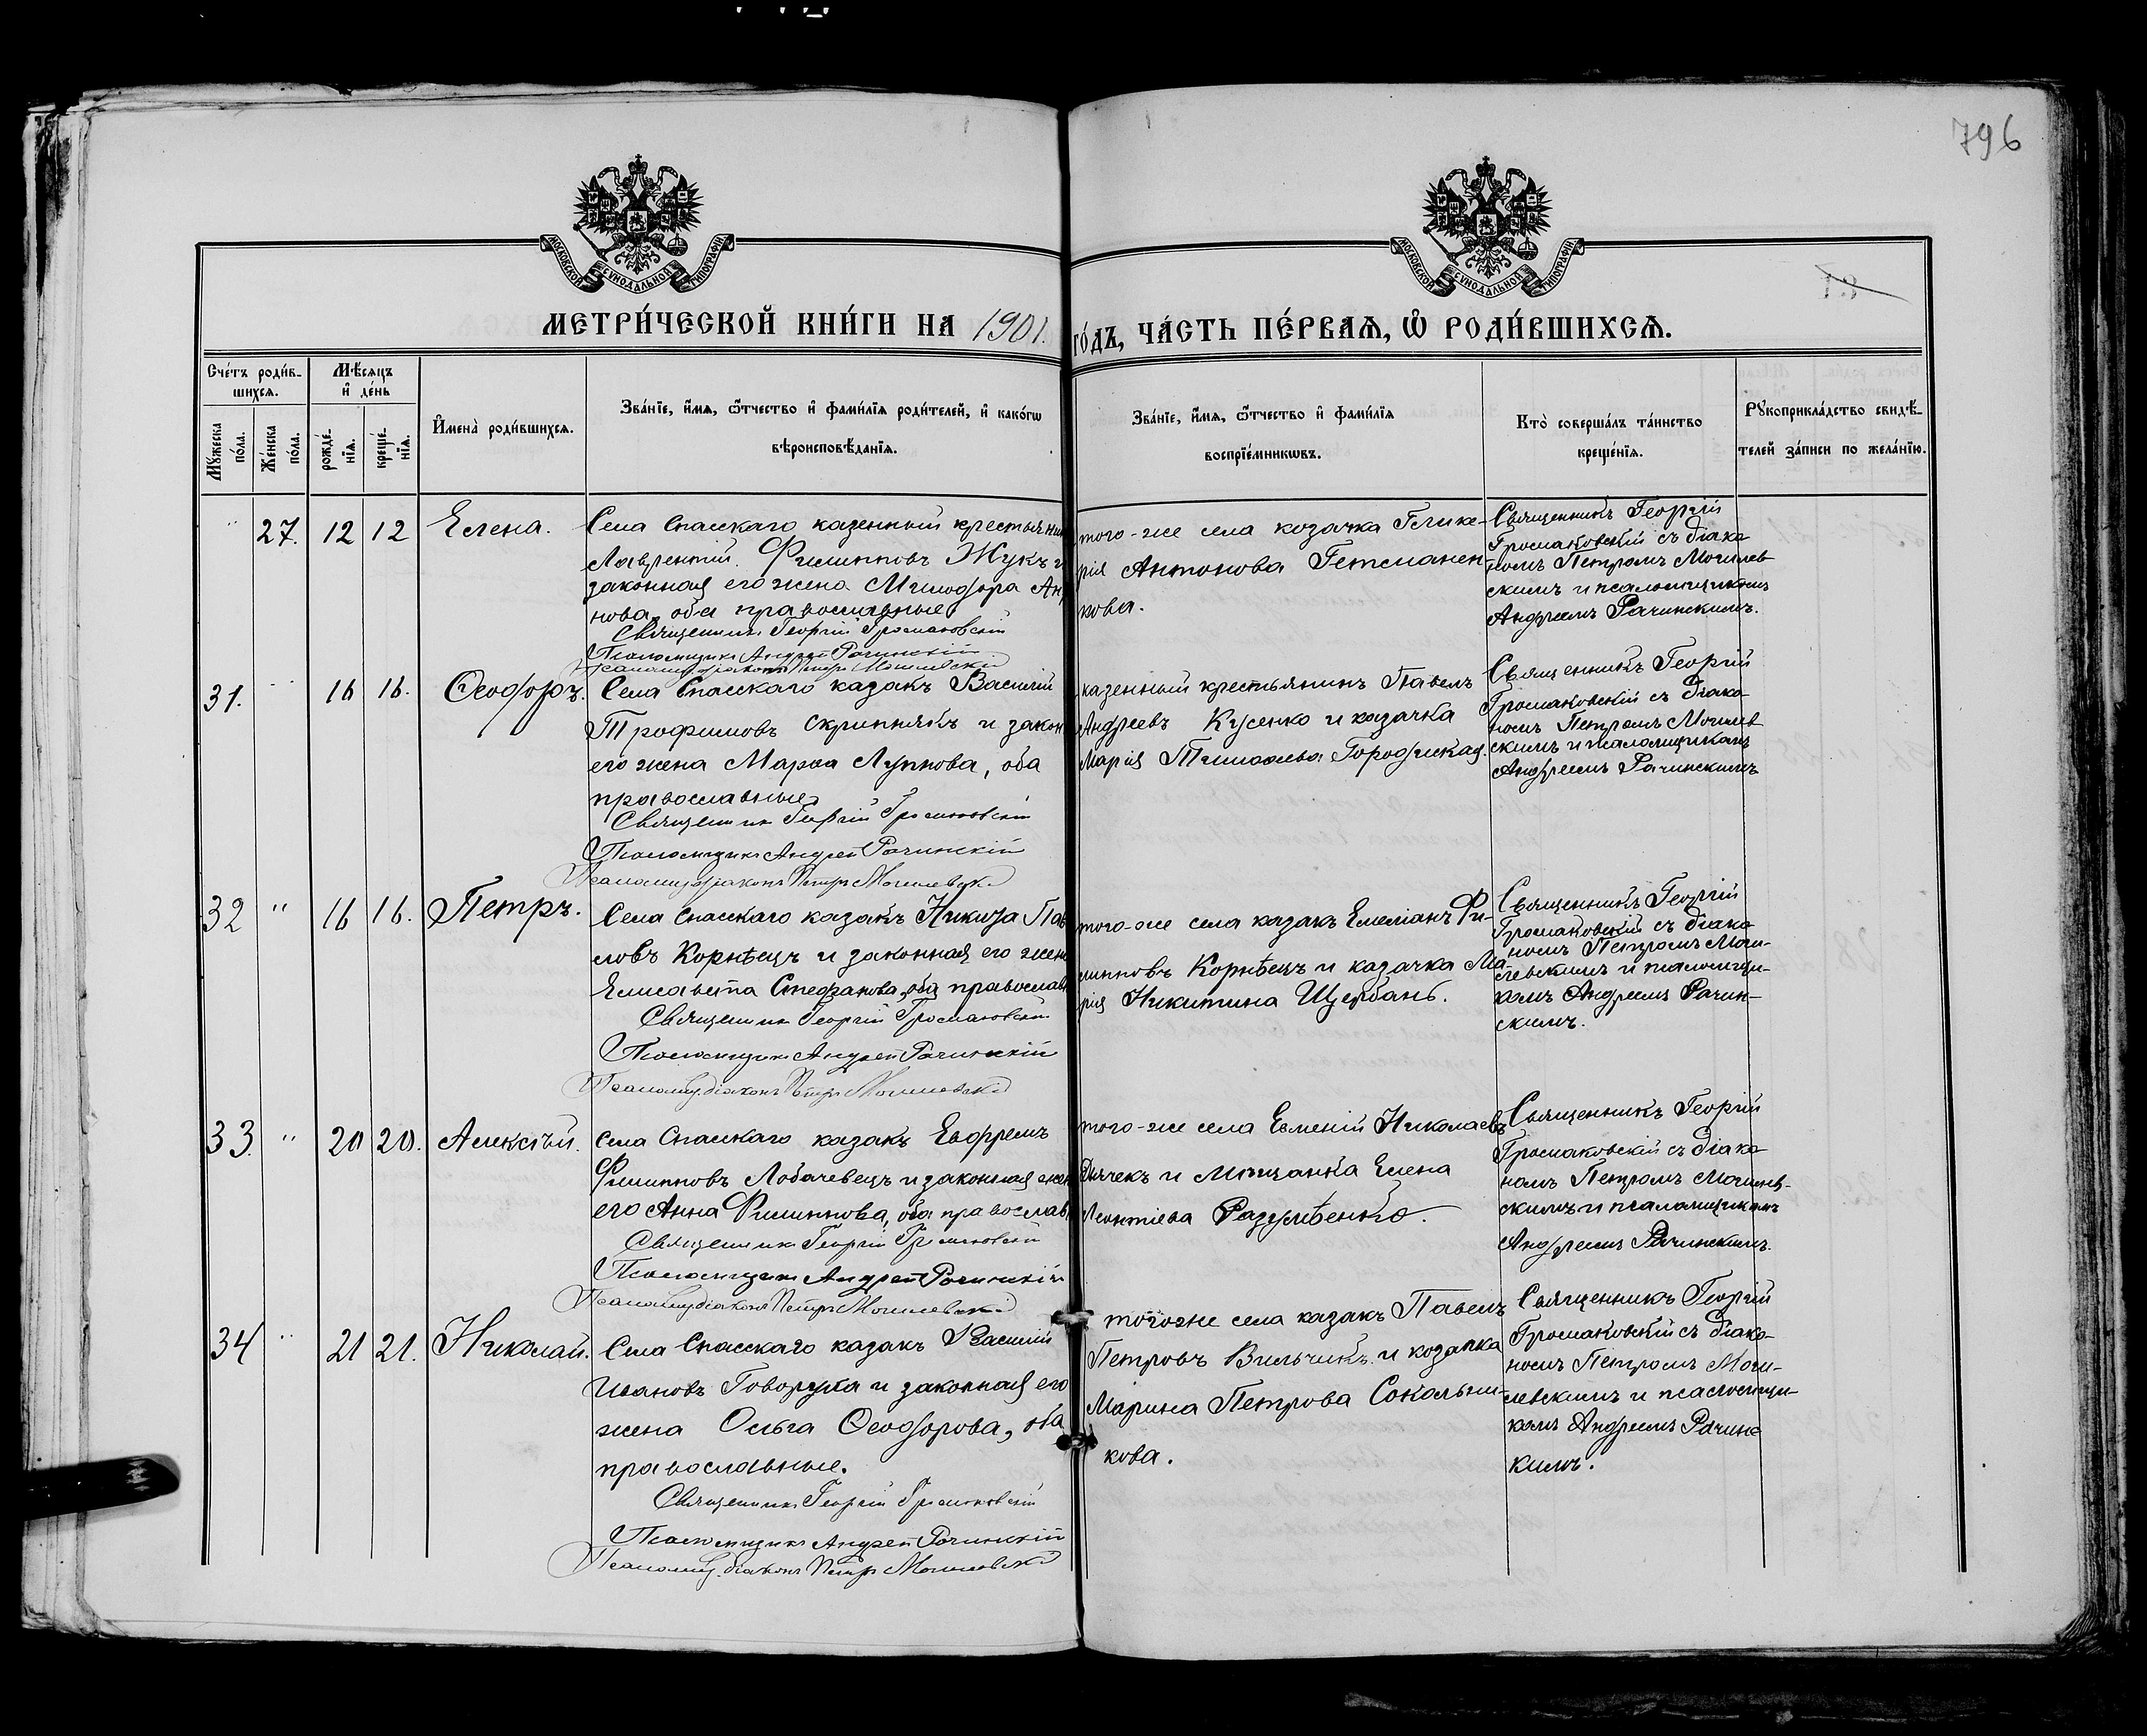 796
МОСКОВСКОЙ СѴНОДАЛЬНОЙ ТИПОГРАФІИ
МОСКОВСКОЙ СѴНОДАЛЬНОЙ ТИПОГРАФІИ
МЕТРИ́ЧЕСКОЙ КНИ́ГИ НА 1901.
ГО́ДЪ, ЧА́СТЬ ПЕ́РВАѦ, Ѡ҆ РОДИ́ВШИХСѦ.
Счéтъ роди́в-
шихсѧ.
Мѣ́сѧцъ
и҆ де́нь
Мꙋ́жеска
по́ла.
Же́нска
по́ла.
рожде́-
нїѧ.
креще́-
нїѧ.
И҆мена̀ роди́вшихсѧ.
Зва́нїе, и҆́мѧ, ѻ҆́тчество и҆ фами́лїѧ роди́телей, и҆ како́гѡ
вѣроисповѣ́данїѧ.
Зва́нїе, и҆́мѧ, ѻ҆́тчество и҆ фами́лїѧ
воспрїе́мникѡвъ.
Кто̀ соверша́лъ та́инство
креще́нїѧ.
Рꙋкоприкла́дство свидѣ́-
телей за́писи по жела́нїю.
" 27. 12 12 Елена.
Села Спасскаго казенный крестьянин
Лаврентій Филипповъ Жукъ и
законная его жена Милодора Ан
нова, оба православные
Священникъ Георгій Громаковскій
Псаломщикъ Андрей Рачинскій
Псаломщ. діаконъ Петръ Могилевскій
того-же села козачка Глике-
рія Антонова Гетманен
кова.
Священникъ Георгій
Громаковскій съ діако
номъ Петромъ Могилев
скимъ и псаломщикомъ
Андреемъ Рачинскимъ.
31. " 16 16. Ѳеодоръ.
Села Спасскаго казакъ Василій
Трофимовъ Скриннякъ и закон
его жена Марѳа Лупнова, оба
православные
Священникъ Георгій Громаковскій
Псаломщикъ Андрей Рачинскій
Псаломщ. діаконъ Петръ Могилевскій
казенный крестьянинъ Павелъ
Андреевъ Кусенко и козачка
Марія Тимоѳеева Городиская.
Священникъ Георгій
Громаковскій съ діако
номъ Петромъ Могилев
скимъ и псаломщикомъ
Андреемъ Рачинскимъ
32 " 16 16. Петръ.
Села Спасскаго казакъ Никита Пав
ловъ Корнѣецъ и законная его жена
Елисавета Стефанова, оба православн
Священникъ Георгій Громаковскій
Псаломщикъ Андрей Рачинскій
Псаломщ. діаконъ Петръ Могилевскій
того-же села казакъ Емеліанъ Фи-
липповъ Корнѣецъ и казачка Ма-
рія Никитина Щербань.
Священникъ Георгій
Громаковскій съ діако
номъ Петромъ Моги-
левскимъ и псаломщи-
комъ Андреемъ Рачин-
скимъ.
33. " 20 20. Алексѣй.
Села Спасскаго казакъ Евфремъ
Филипповъ Лобачевецъ и законная жен
его Анна Филиппова, оба православн
Священникъ Георгій Громаковскій
Псаломщикъ Андрей Рачинскій
Псаломщ. діаконъ Петръ Могилевскій
того-же села Евменій Николаевъ
Дьячекъ и мѣщанка Елена
Леонтіева Разумѣенко.
Священникъ Георгій
Громаковскій съ діако
номъ Петромъ Могилев-
скимъ и псаломщикомъ
Андреемъ Рачинскимъ.
34 " 21 21. Николай.
Села Спасскаго казакъ Василій
Ивановъ Говоруха и законная его
жена Ольга Ѳеодорова, оба
православные.
Священникъ Георгій Громаковскій
Псаломщикъ Андрей Рачинскій
Псаломщ. діаконъ Петръ Могилевскій
того-же села казакъ Павелъ
Петровъ Вильчикъ и козачка
Марина Петрова Сокольни-
кова.
Священникъ Георгій
Громаковскій съ діако-
номъ Петромъ Моги-
левскимъ и псаломщи-
комъ Андреемъ Рачинс
кимъ.